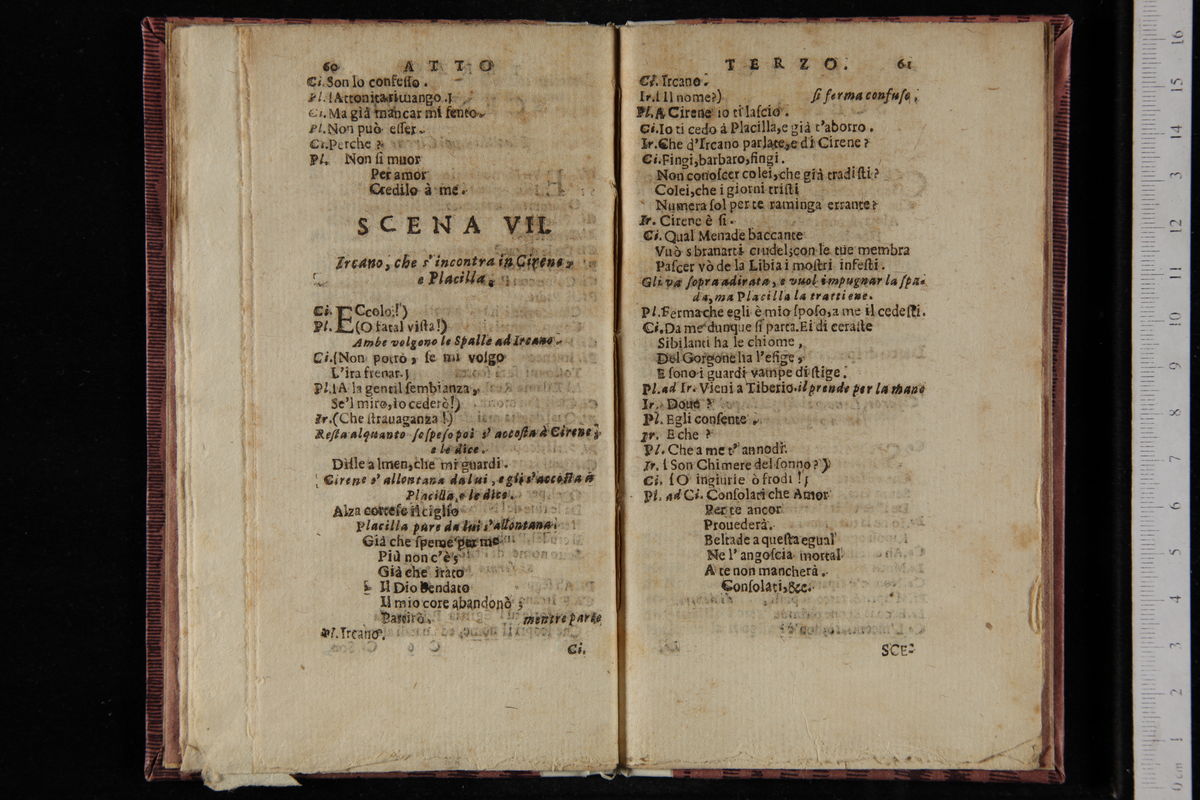 60 ATTO
Ci. Son lo confesso.
Pl. (Attonita rimango.)
Ci. Ma già mancar mi sento.
Pl. Non può esser.
Ci. Perche?
Pl. Non si muor
Per amor
Credilo à me.
SCENA VII.
Ircano, che s'incontra in Cirene,
e Placilla.
Ci. ECcolo!)
Pl. (O fatal vista!)
Ambe volgono le Spalle ad Ircano.
Ci. (Non potrò, se mi volgo
L'ira frenar.)
Pl. (A la gentil sembianza,
Se'l miro, io cederò!)
Ir. (Che strauaganza!)
Resta alquanto sospeso poi s'accosta à Cirene,
e le dice.
Disse almen, che mi guardi.
Cirene s'allontana da lui, e gli s'accosta à
Placilla, e le dice.
Alza cortese il ciglio
Placilla pure da lui s'allontana.
Già che speme per me
Più non c'è;
Già che irato
Il Dio Bendato
Il mio core abandonò;
Partirò. mentre parte
Pl. Ircano.
Ci.
TERZO. 61
Ci. Ircano.
Ir. (Il nome?) si ferma confuso.
Pl. A Cirene io ti lascio.
Ci. Io ti cedo à Placilla, e già t'aborro.
Ir. Che d'Ircano parlate, e di Cirene?
Ci. Fingi, barbaro, fingi.
Non conoscer colei, che già tradisti?
Colei, che i giorni tristi
Numera sol per te raminga errante?
Ir. Cirene è sì.
Ci. Qual Menade baccante
Vuò sbranarti crudel; con le tue membra
Pascer vò de la Libia i mostri infesti.
Gli và sopra adirata, e vuol impugnar la spa-
da, ma Placilla la trattiene.
Pl. Ferma che egli è mio sposo, a me il cedesti.
Ci. Da me dunque si parta. Ei di ceraste
Sibilanti ha le chiome,
Del Gorgone ha l'efige,
E sono i guardi vampe di stige.
Pl. ad Ir. Vieni a Tiberio. il prende per la mano
Ir. Doue?
Pl. Egli consente.
Ir. E che?
Pl. Che a me t'annodi.
Ir. (Son Chimere del sonno?)
Ci. (O ingiurie ò frodi!)
Pl. ad Ci. Consolati che Amor
Per te ancor
Prouederà.
Beltade a questa egual
Ne l'angoscia mortal
A te non mancherà.
Consolati, &c.
SCE-